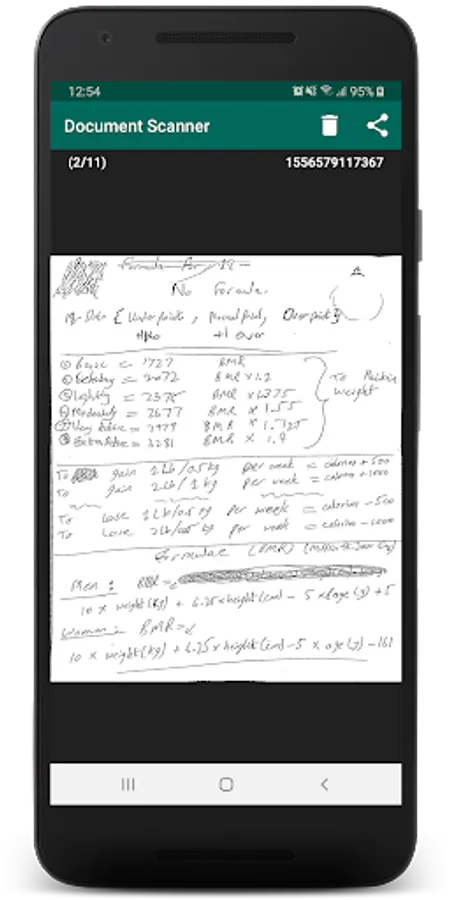 12:54 95%
Document Scanner
(2/11) 1556579117367
Formula For
No Formula.
A
{ Underpoint, Normal point, Over point }
+1 over
① = 1727 BMR
② = 2072 BMR x 1.2
③ Lightly = 2375 BMR x 1.375
④ Moderately = 2677 BMR x 1.55
Very Active = 2979 BMR x 1.725
Extra Active = 3281 BMR x 1.9
To Maintain
weight
To gain 1Lb/0.5kg per week = calories + 500
To gain 2Lb/1kg per week = calories + 1000
To Lose 1Lb/0.5kg per week = calories - 500
To Lose 2Lb/ kg per week = calories - 1000
Formulae (BMR)
Men : BMR =
10 x weight(kg) + 6.25 x height(cm) - 5 x age(y) + 5
Woman : BMR =
10 x weight(kg) + 6.25 x height(cm) - 5 x age(y) - 161